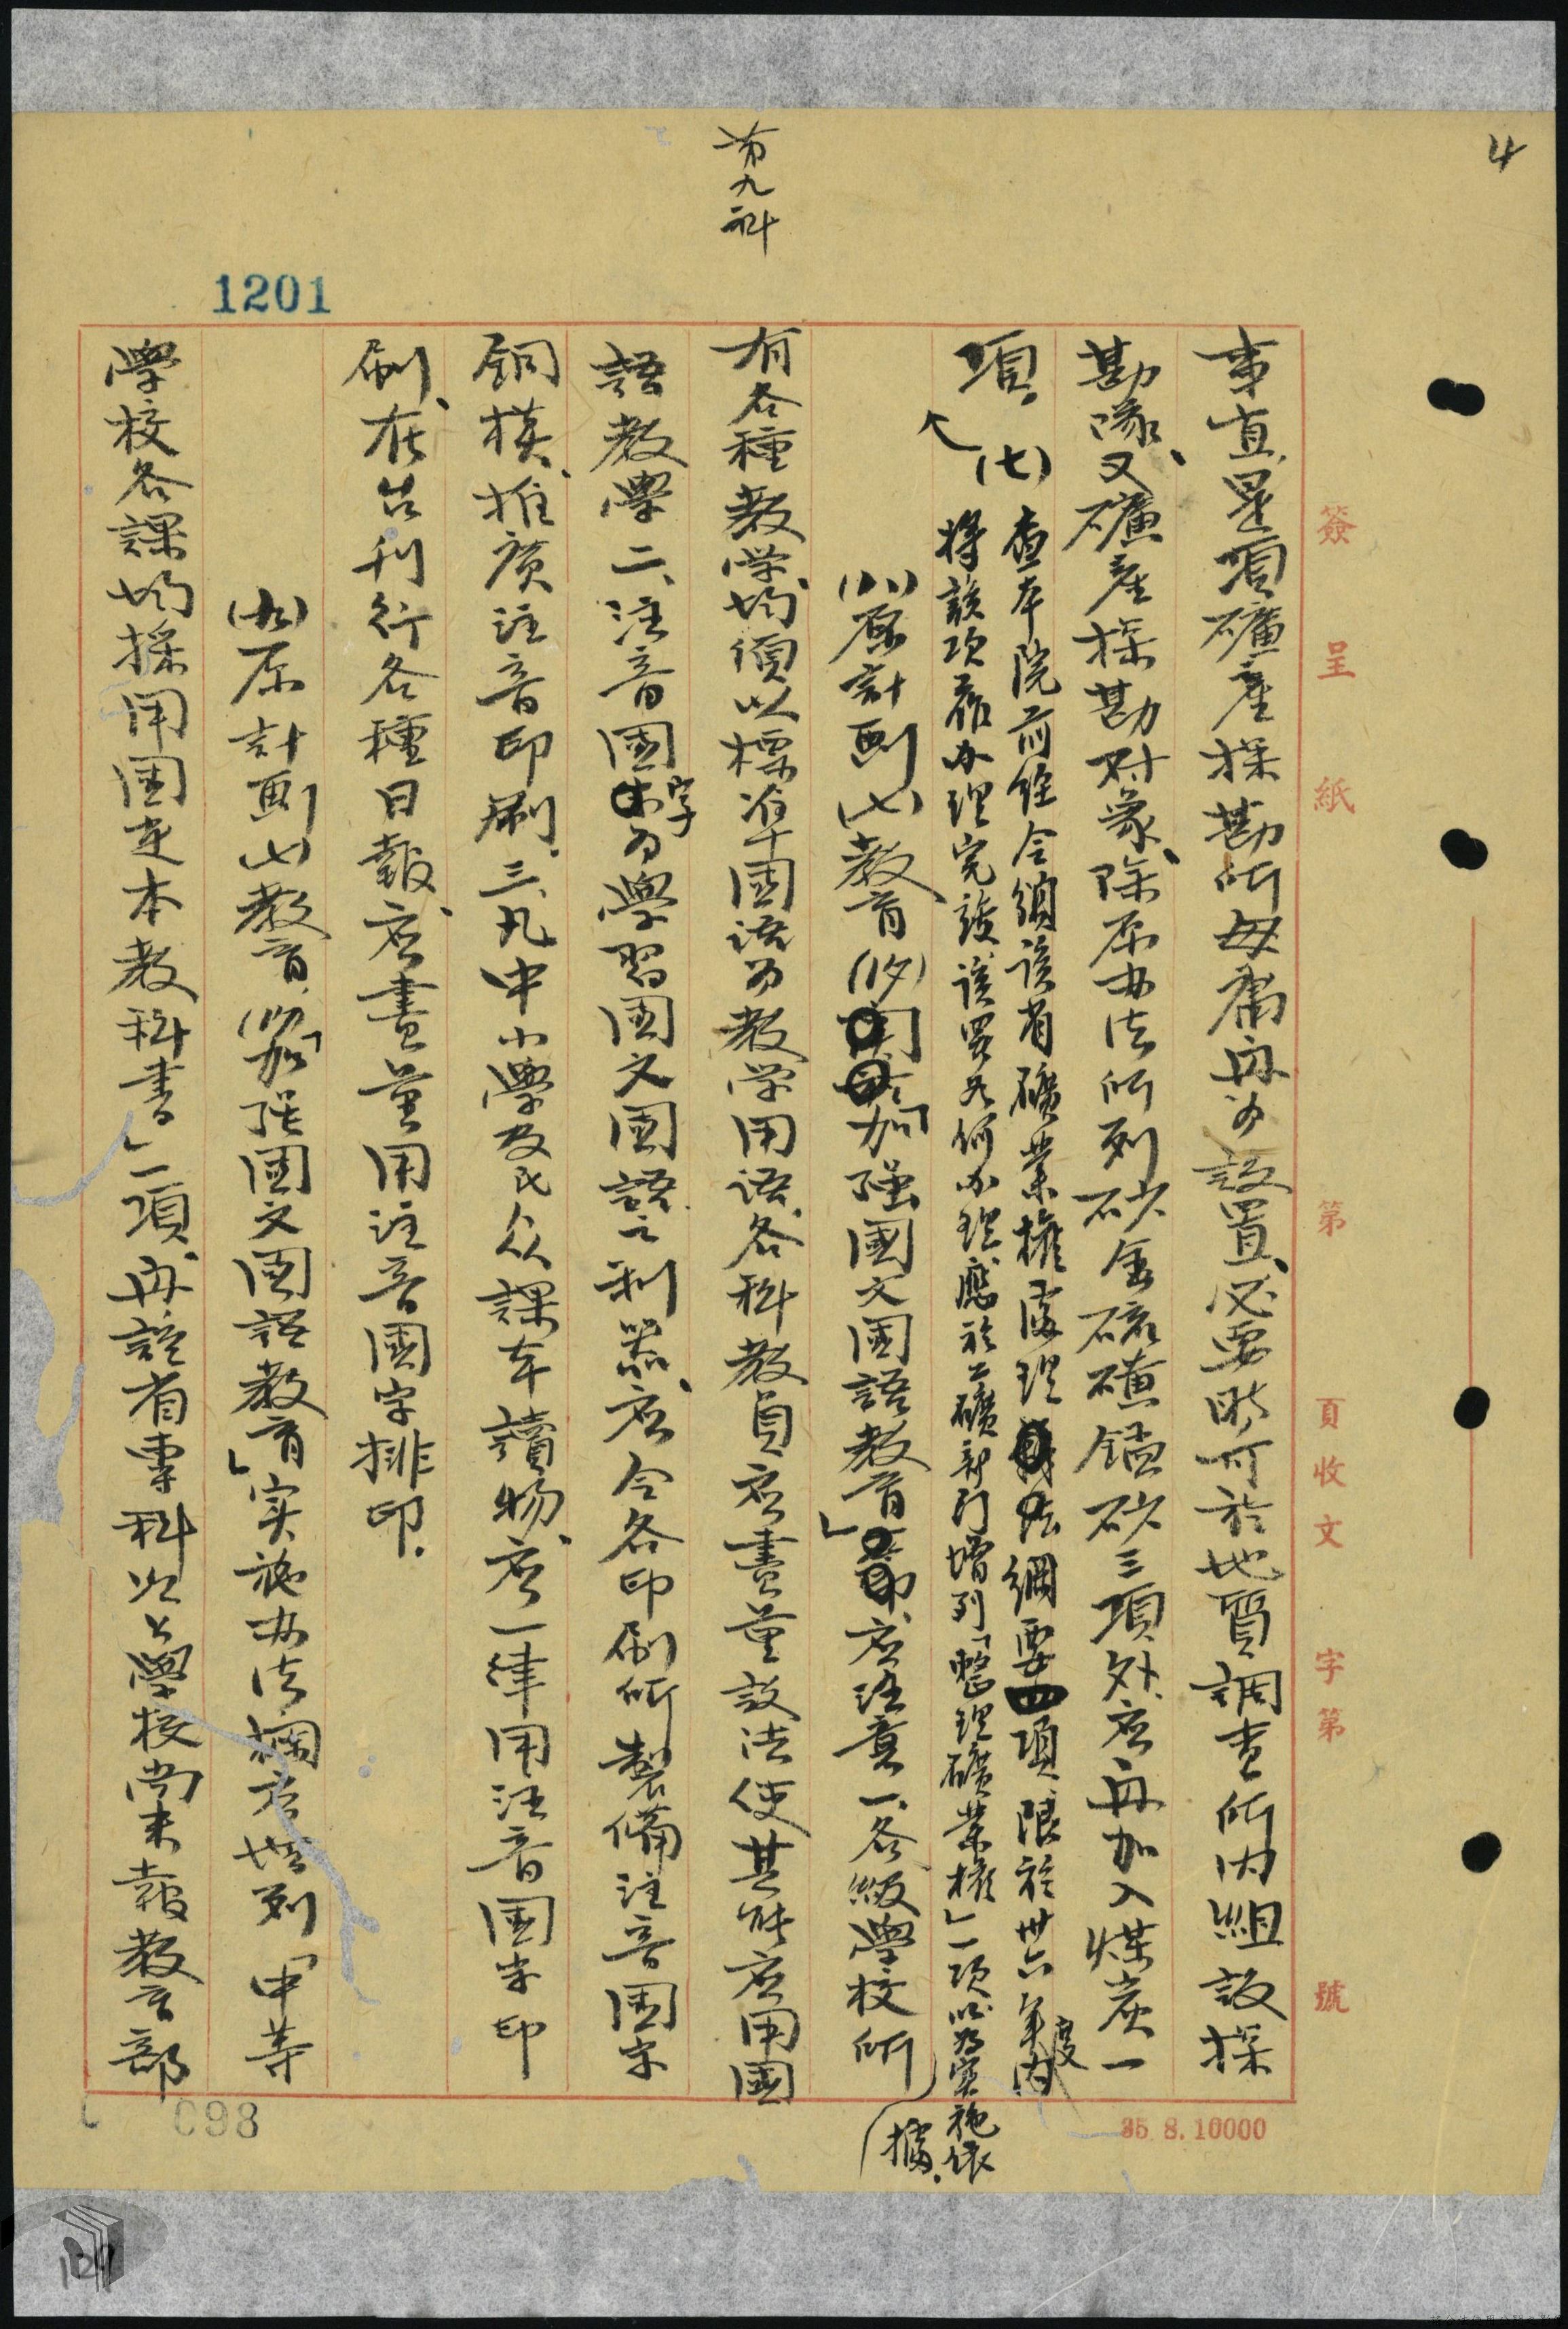 4
第九科
1201
簽呈紙 第 頁收文 字第 號
事宜是項礦產探勘所毋庸再為設置、必要時可於地質調查所內組設探
勘隊、又礦產探勘对象、除原办法所列砂金硫磺錳砂三項外、应再加入煤炭一
項。
(七)查本院前經令頒該省礦業權處理辦法綱要四項限於卅六年度內
將該項工作办理完竣該署如何办理應於工礦部门增列「整理礦業權」一項以為实施依
據。
(八)原計劃(一)教育(修)加「加强國文國語教育」应注意一、各級學校所
有各種教学均須以標准國語为教学用語、各科教員应盡量設法使其能应用國
語教學二、注音國字为學習國文國語之利器、应令各印刷所製備注音國字
銅模、推廣注音印刷、三、凡中小學及民众課本讀物、应一律用注音國字印
刷、在台刊行各種日報、应盡量用注音國字排印.
(九)原計劃(一)教育、(修)「加强國文國語教育」实施办法欄应增列「中等
學校各課均採用國定本教科書」一項、再該省專科以上學校尚未報教育部
098
35. 8. 10000
129